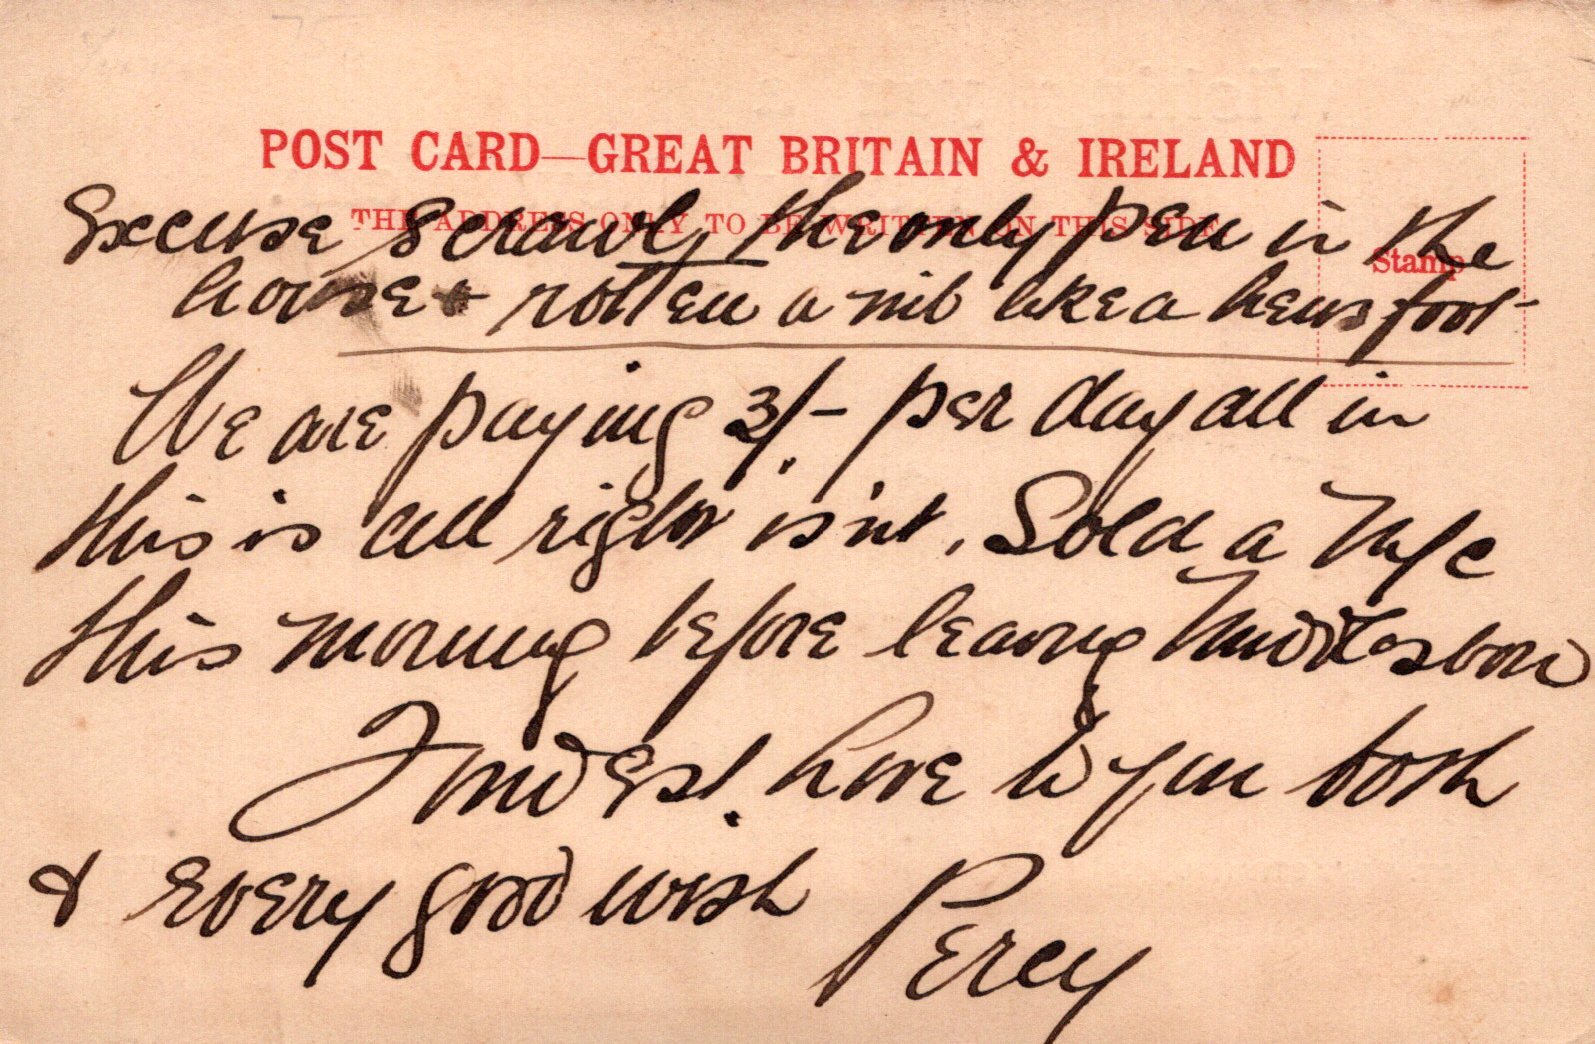 POST CARD—GREAT BRITAIN & IRELAND
THE ADDRESS ONLY TO BE WRITTEN ON THIS SIDE
Stamp
Excuse scrawl, the only pen in the
house & rotten a nib like a hens foot
We are paying 3/- per day all in
this is all right isn't. Sold a M/c
this morning before leaving Middlesboro
Fondest love to you both
& every good wish Percy